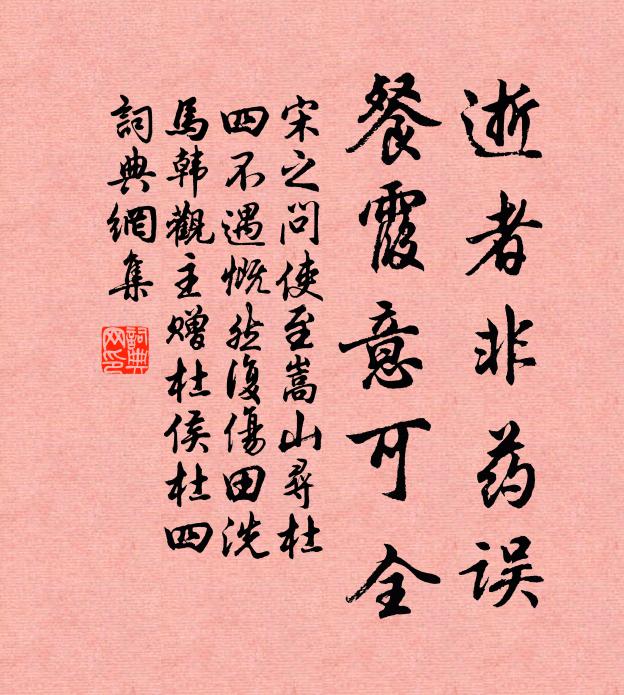 逝者非药误
餐霞意可全
宋之问使至嵩山寻杜
四不遇慨然復傷田洗
馬韩觀主赠杜侯杜四
詞典網集
詞典网印